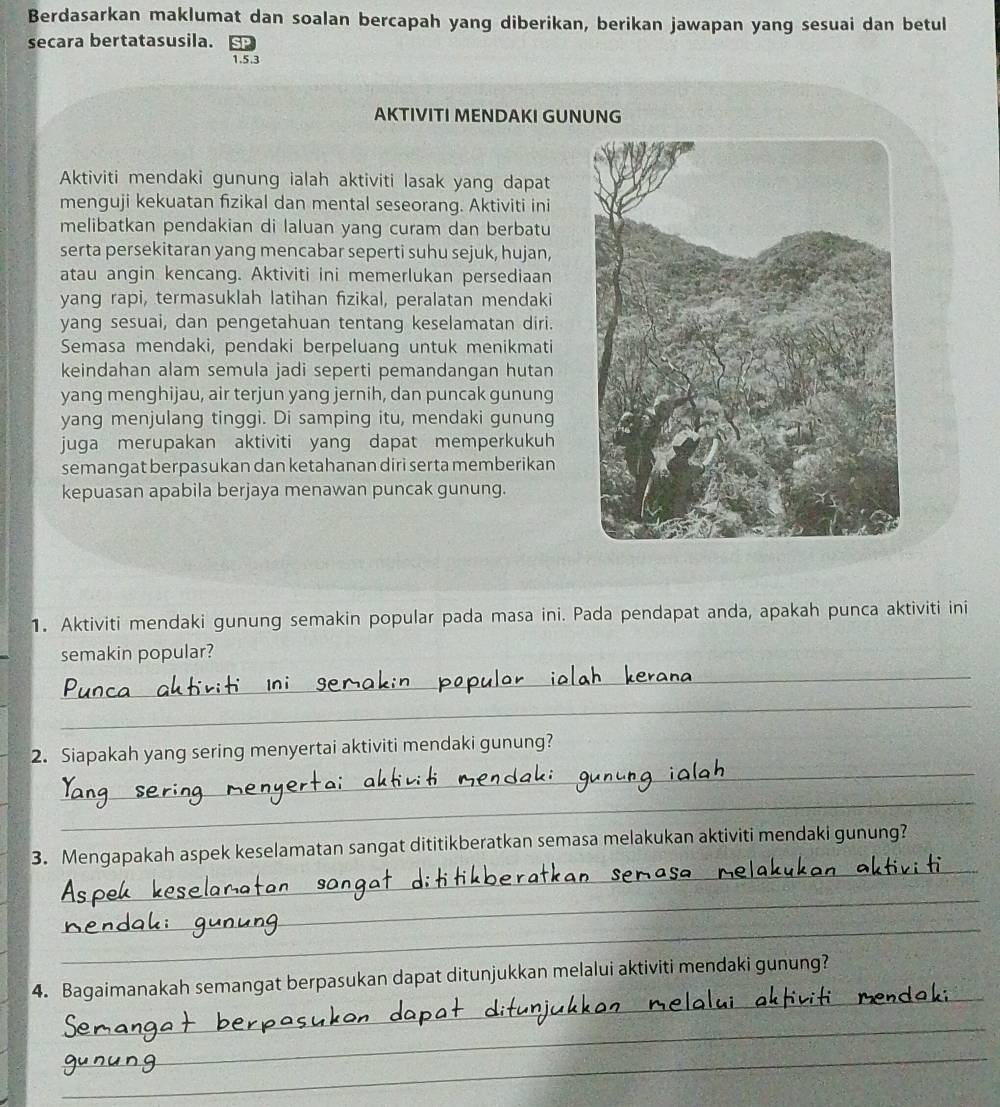 Berdasarkan maklumat dan soalan bercapah yang diberikan, berikan jawapan yang sesuai dan betul
secara bertatasusila. SP
1.5.3
AKTIVITI MENDAKI GUNUNG
Aktiviti mendaki gunung ialah aktiviti lasak yang dapat
menguji kekuatan fizikal dan mental seseorang. Aktiviti ini
melibatkan pendakian di laluan yang curam dan berbatu
serta persekitaran yang mencabar seperti suhu sejuk, hujan,
atau angin kencang. Aktiviti ini memerlukan persediaan
yang rapi, termasuklah latihan fizikal, peralatan mendaki
yang sesuai, dan pengetahuan tentang keselamatan diri.
Semasa mendaki, pendaki berpeluang untuk menikmati
keindahan alam semula jadi seperti pemandangan hutan
yang menghijau, air terjun yang jernih, dan puncak gunung
yang menjulang tinggi. Di samping itu, mendaki gunung
juga merupakan aktiviti yang dapat memperkukuh
semangat berpasukan dan ketahanan diri serta memberikan
kepuasan apabila berjaya menawan puncak gunung.
1. Aktiviti mendaki gunung semakin popular pada masa ini. Pada pendapat anda, apakah punca aktiviti ini
semakin popular?
Punca aktiviti ini semakin popular ialah kerana
2. Siapakah yang sering menyertai aktiviti mendaki gunung?
Yang sering menyertai aktiviti mendaki gunung ialah
3. Mengapakah aspek keselamatan sangat dititikberatkan semasa melakukan aktiviti mendaki gunung?
Aspek keselamatan sangat dititikberatkan semasa melakukan aktiviti
mendaki gunung
4. Bagaimanakah semangat berpasukan dapat ditunjukkan melalui aktiviti mendaki gunung?
Semangat berpasukan dapat ditunjukkan melalui aktiviti mendaki
gunung